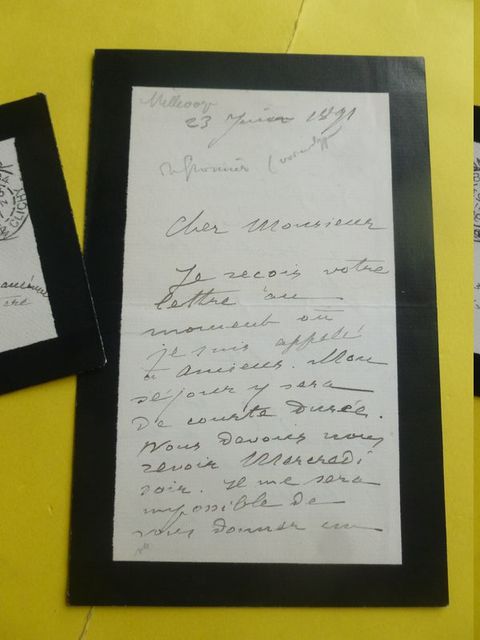 23 1891
Cher Monsieur
Je reçois votre
lettre au
moment où
je suis appelé
à Amiens. Mon
séjour y sera
de courte durée.
Nous devons nous
revoir Mercredi
soir. Il me sera
impossible de
vous donner un
CLICHY